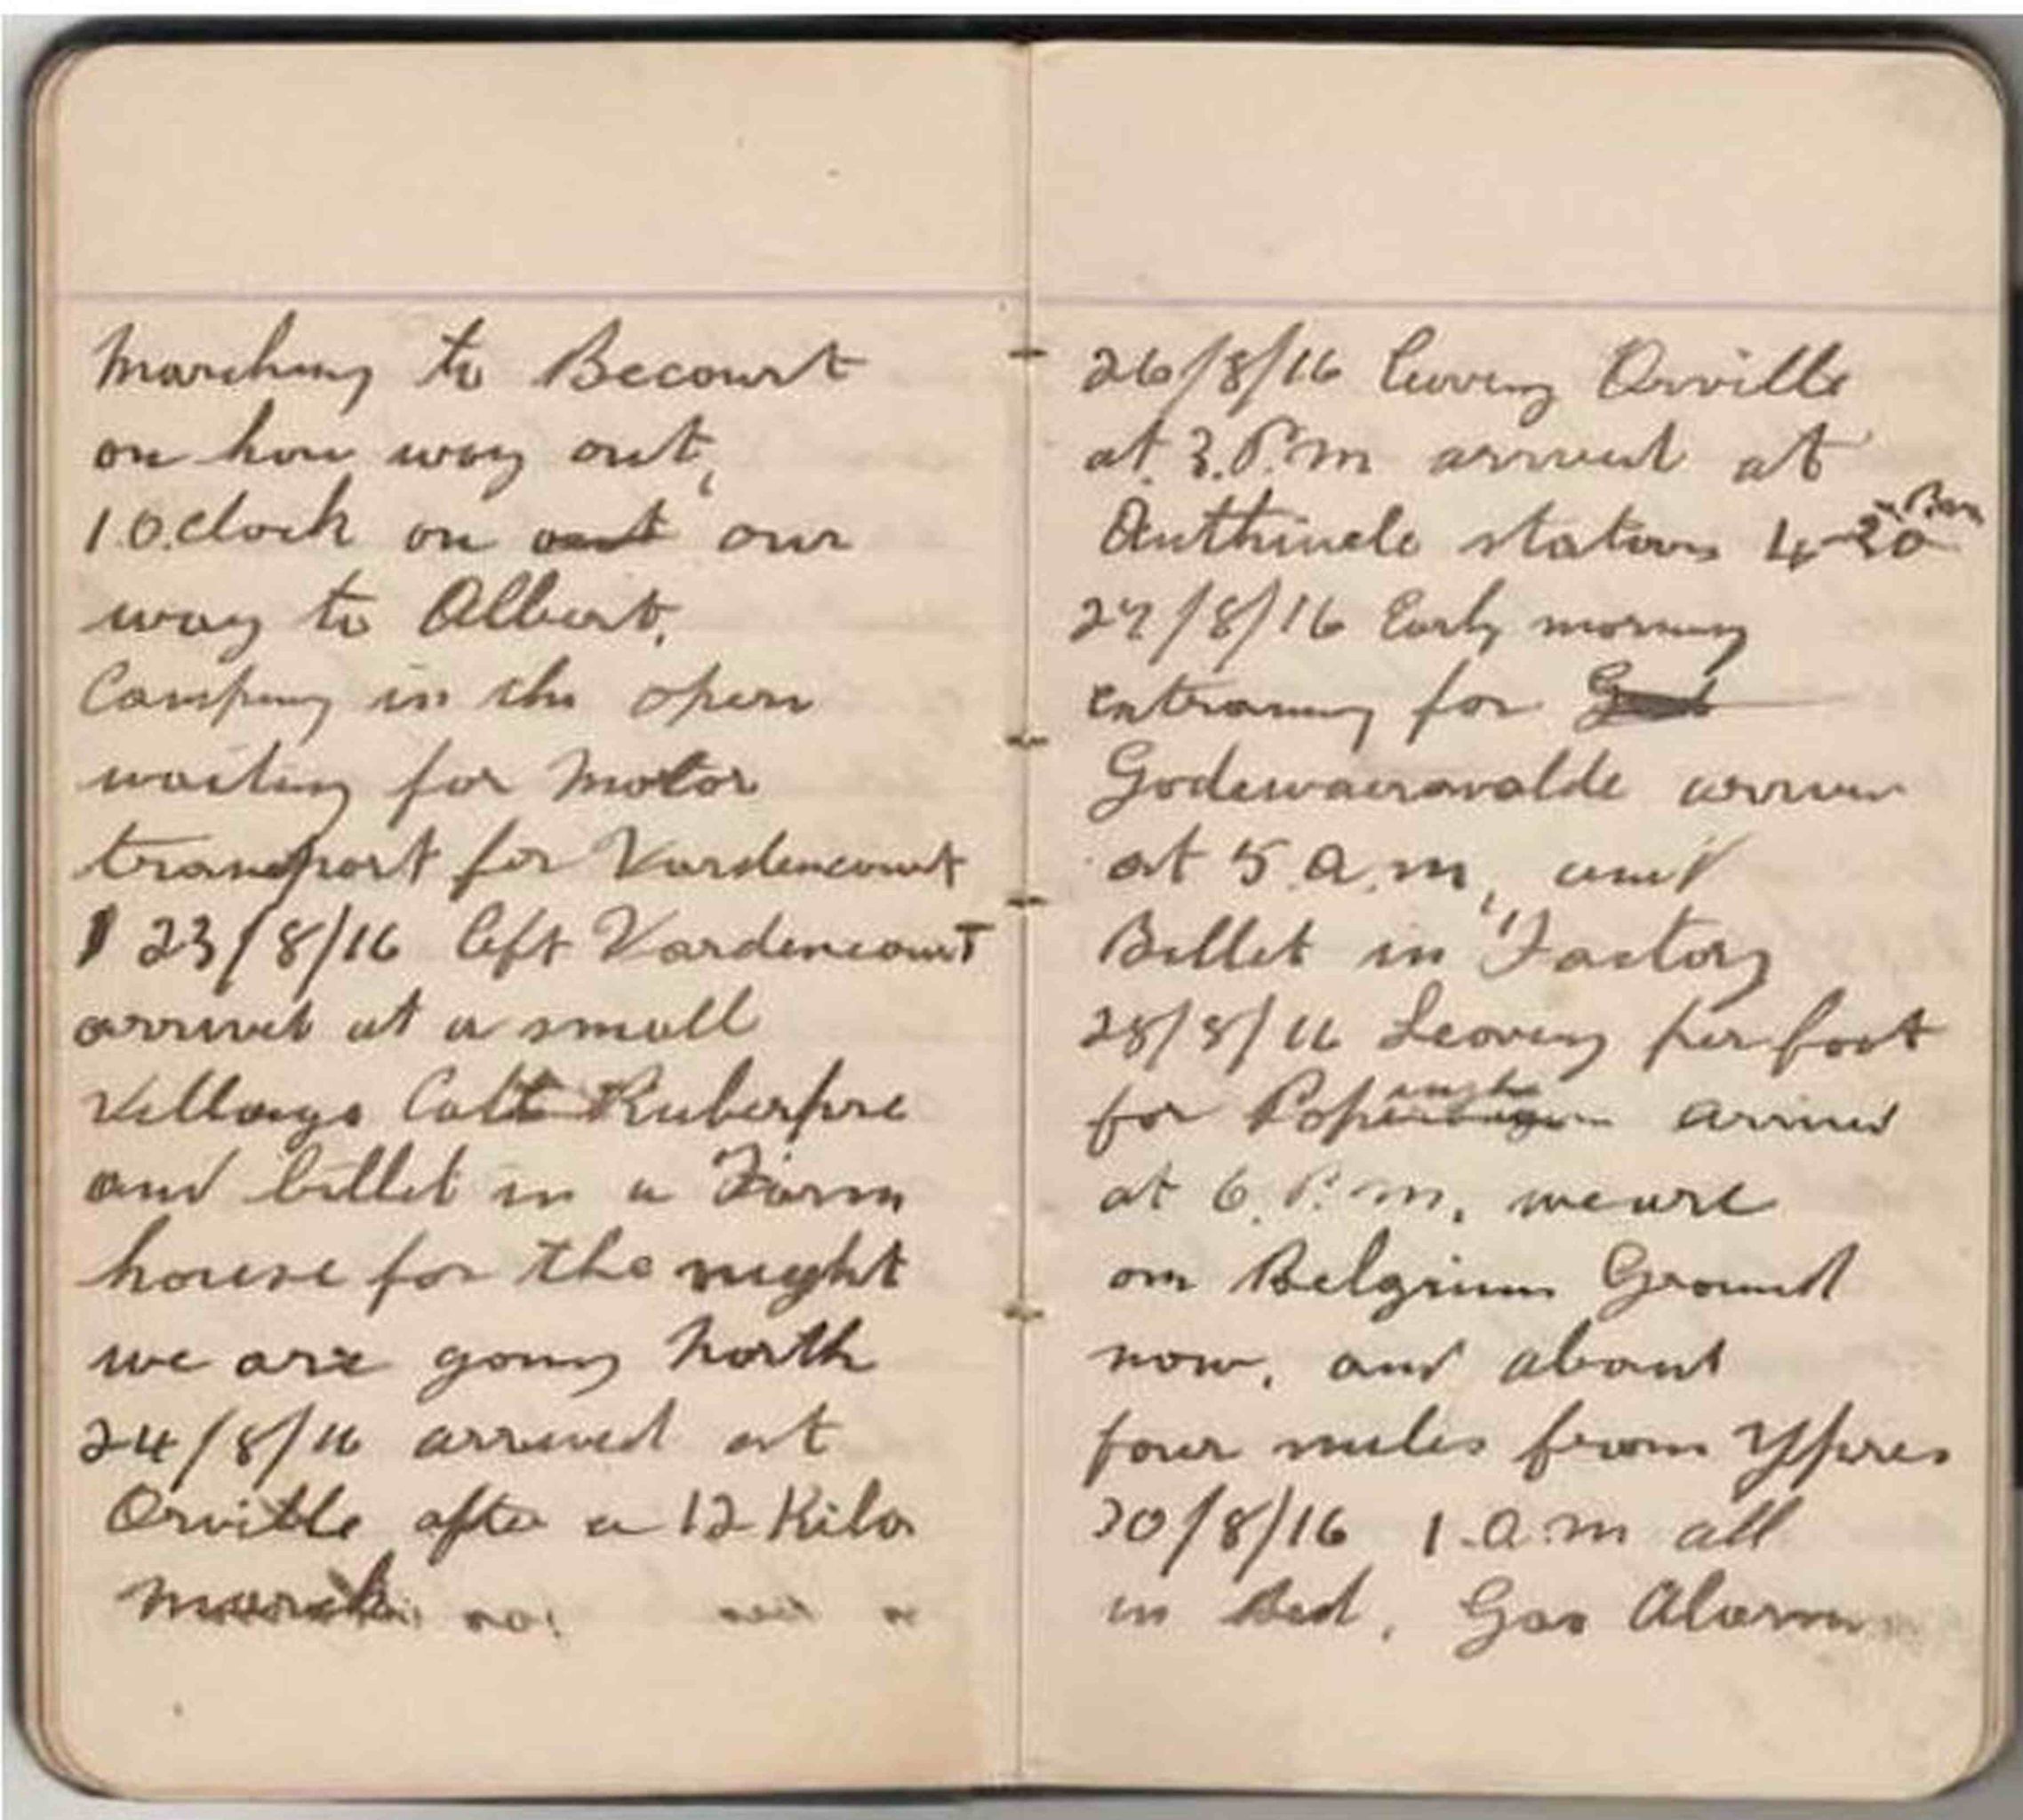 Marching to Becourt
on how way out,
1 O.clock on out our
way to Albert.
Camping in the open
waiting for Motor
transport for Vardencourt
23/8/16 left Vardencourt
arrivet at a small
Village Calt Ruberpre
and billet in a Farm
house for the night
we are going North
24/8/16 arrived at
Orville after a 12 Kilo
march
26/8/16 leaving Orville
at 3.P.m arrived at
Authiuele station 4-30 P.m
27/8/16 Early morning
entraining for
Godewaersvalde arrive
at 5.a.m, and
Billet in Factory
28/8/16 Leaving per foot
for arrived
at 6.P.m. we are
on Belgium Ground
now. and about
four miles from Ypres
30/8/16 1.a.m all
in Bed. Gas Alarm